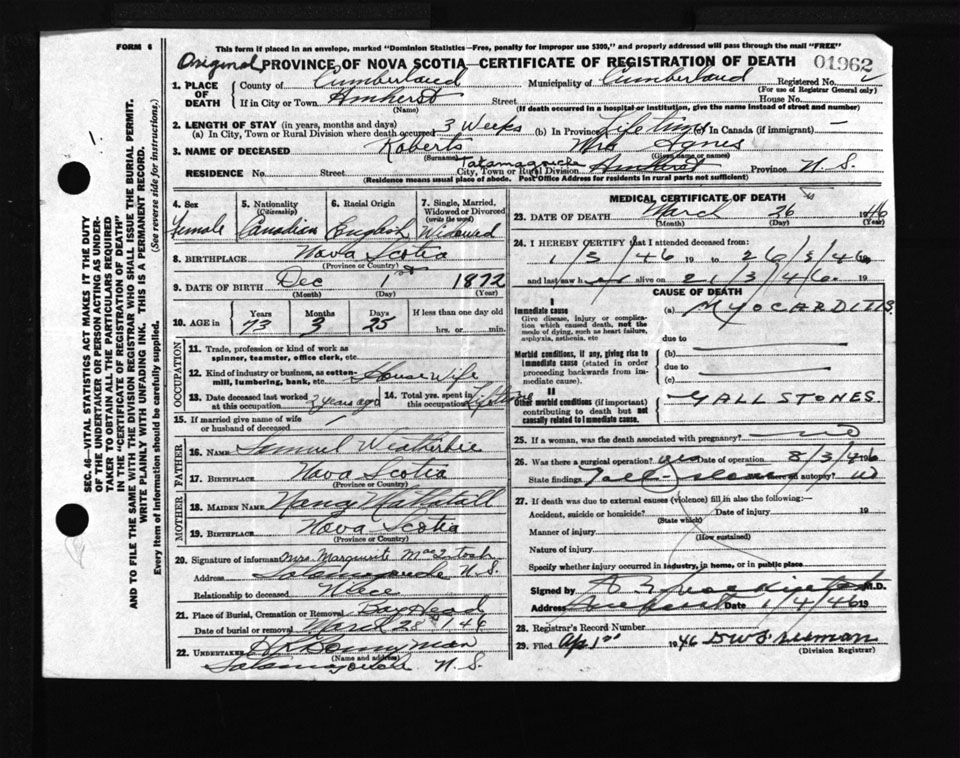 FORM 6
This form if placed in an envelope, marked "Dominion Statistics—Free, penalty for improper use $300," and properly addressed will pass through the mail "FREE"
Original PROVINCE OF NOVA SCOTIA—CERTIFICATE OF REGISTRATION OF DEATH 01962
1. PLACE OF DEATH County of Cumberland Municipality of Cumberland Registered No.
(For use of Registrar General only)
If in City or Town Amherst Street House No.
(Name) (If death occurred in a hospital or institution, give the name instead of street and number)
2. LENGTH OF STAY (in years, months and days)
(a) In City, Town or Rural Division where death occurred 3 Weeks (b) In Province Life time (c) In Canada (if immigrant) —
3. NAME OF DECEASED Roberts Mrs Agnes
(Surname) (Given name or names)
RESIDENCE No. Street Tatamagouche City, Town or Rural Division Amherst Province N. S.
(Residence means usual place of abode. Post Office Address for residents in rural parts not sufficient)
4. Sex Female
5. Nationality (Citizenship) Canadian
6. Racial Origin English
7. Single, Married, Widowed or Divorced (write the word) Widowed
8. BIRTHPLACE Nova Scotia
(Province or Country)
9. DATE OF BIRTH Dec 1st 1872
(Month) (Day) (Year)
10. AGE in Years 73 Months 3 Days 25 If less than one day old hrs. or min.
OCCUPATION
11. Trade, profession or kind of work as spinner, teamster, office clerk, etc.
12. Kind of industry or business, as cotton-mill, lumbering, bank, etc. House Wife
13. Date deceased last worked at this occupation 2 years ago
14. Total yrs. spent in this occupation Life time
15. If married give name of wife or husband of deceased
FATHER
16. NAME Samuel Weatherbie
17. BIRTHPLACE Nova Scotia
(Province or Country)
MOTHER
18. MAIDEN NAME Nancy
19. BIRTHPLACE Nova Scotia
(Province or Country)
20. Signature of informant Mrs. Marguerite MacIntosh
Address Tatamagouche N. S.
Relationship to deceased Niece
21. Place of Burial, Cremation or Removal Bay Head
Date of burial or removal March 28th 1946
22. UNDERTAKER
(Name and address)
Tatamagouche N. S.
MEDICAL CERTIFICATE OF DEATH
23. DATE OF DEATH March 26 1946
(Month) (Day)
24. I HEREBY CERTIFY that I attended deceased from:
1/3/46 19 to 26/3/46 19
and last saw her alive on 21/3/46. 19
CAUSE OF DEATH
I
Immediate cause
Give disease, injury or complication which caused death, not the mode of dying, such as heart failure, asphyxia, asthenia, etc
(a) MYOCARDITIS.
due to
Morbid conditions, if any, giving rise to immediate cause (stated in order proceeding backwards from immediate cause).
(b)
due to
(c)
II
Other morbid conditions (if important) contributing to death but not causally related to immediate cause.
GALL STONES.
25. If a woman, was the death associated with pregnancy? no
26. Was there a surgical operation? yes Date of operation 8/3/46
State findings Gall stones Was there an autopsy? no
27. If death was due to external causes (violence) fill in also the following:—
Accident, suicide or homicide? Date of injury 19
(State which)
Manner of injury
(How sustained)
Nature of injury
Specify whether injury occurred in industry, in home, or in public place
Signed by M.D.
Address Amherst Date 1/4/46 19
28. Registrar's Record Number
29. Filed Apr 1st 1946
(Division Registrar)
SEC. 46—VITAL STATISTICS ACT MAKES IT THE DUTY
OF THE UNDERTAKER OR PERSON ACTING AS UNDER-
TAKER TO OBTAIN ALL THE PARTICULARS REQUIRED
IN THE "CERTIFICATE OF REGISTRATION OF DEATH"
AND TO FILE THE SAME WITH THE DIVISION REGISTRAR WHO SHALL ISSUE THE BURIAL PERMIT.
WRITE PLAINLY WITH UNFADING INK. THIS IS A PERMANENT RECORD.
Every item of information should be carefully supplied. (See reverse side for instructions.)